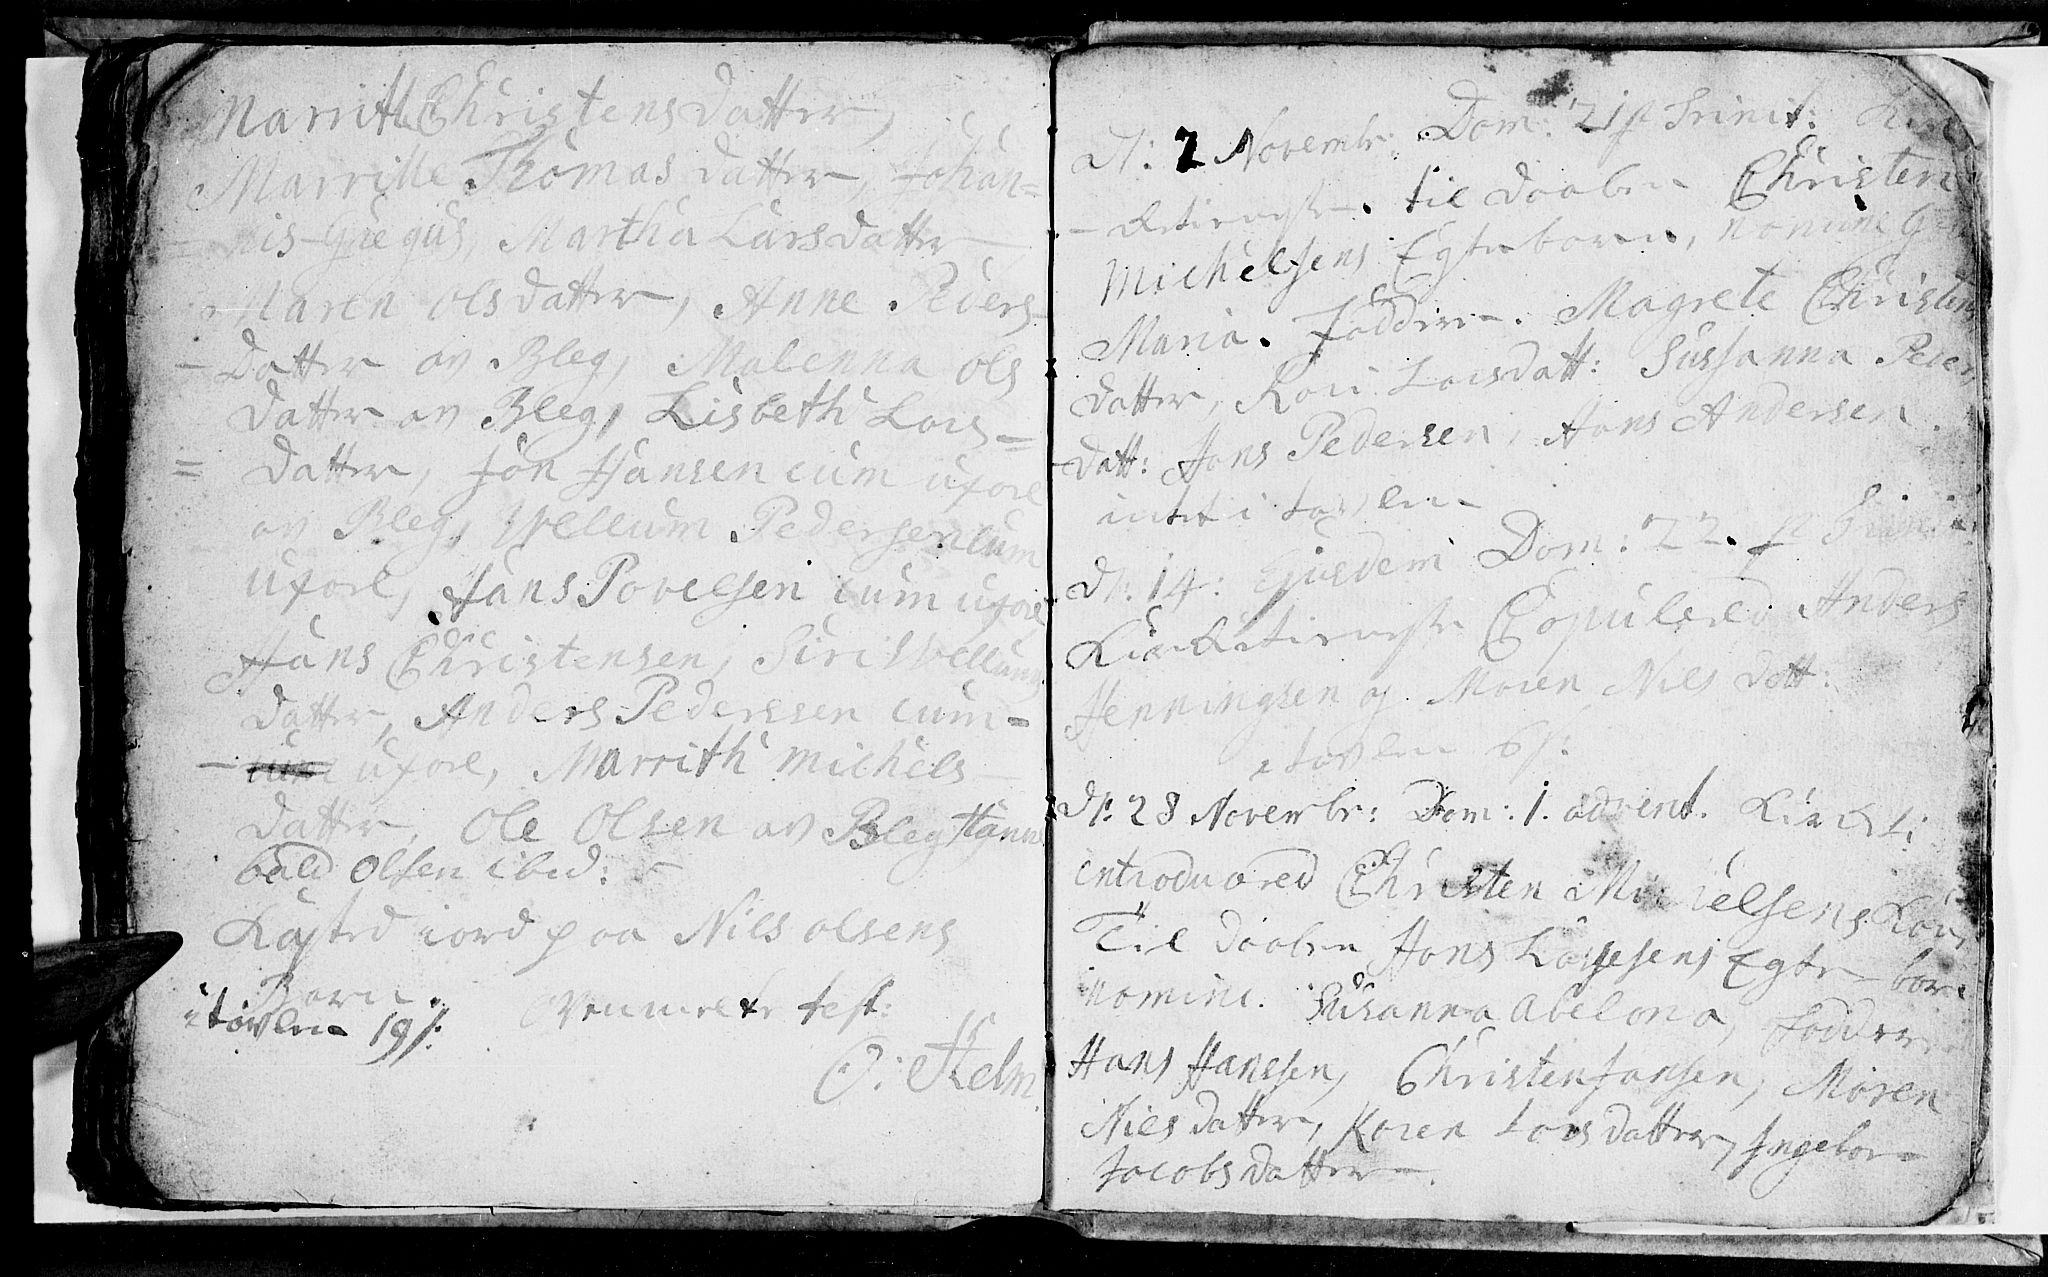 Marrith Christensdatter,
Marrithe Thomas datter, Johan=
= nis Gregus, Martha Larsdatter
Maren Olsdatter, Anne Peders-
- Datter av Bleg, Malenna Ols
datter av Bleg, Lisbeth Lars=
= datter, Jon Hansen cum uxore
av Bleg, Vellum Pedersen cum
uxore, Hans Povelsen cum uxore
Hans Christensen, Siri Vellums
datter, Anders Pederssen cum-
- uxore, Marrith Michels
datter, Ole Olsen av Bleg
bald Olsen ibid:
Kasted iord paa Nils Olsens
Barn.
i tavlen 19 s:
test:
O: Helm
D: 2 Novembr: Dom: 21 p Trinit:
til daaben Christen
Michelsens Egte barn, nomine
Maria. Faddere. Magrete Christens
datter, Larsdatt: Sussanna Peders
datt: Hans Pedersen, Hans Andersen
intet i tavlen
D: 14: Ejusdem Dom: 22. p Trinit:
Copulered Anders
Henningsen og Maren Nils datt:
i tavlen 6 s:
D: 28 Novembr: Dom: 1. advent.
introducered Christen Michelsens Kone
Til daaben Hans Larssens Egte barn
nomine. Susanna Abelona, Faddere
Hans Hanssen, Christen Jonsen, Maren
Nils datter, Karen Lars datter, Ingebor
Jacobs datter.